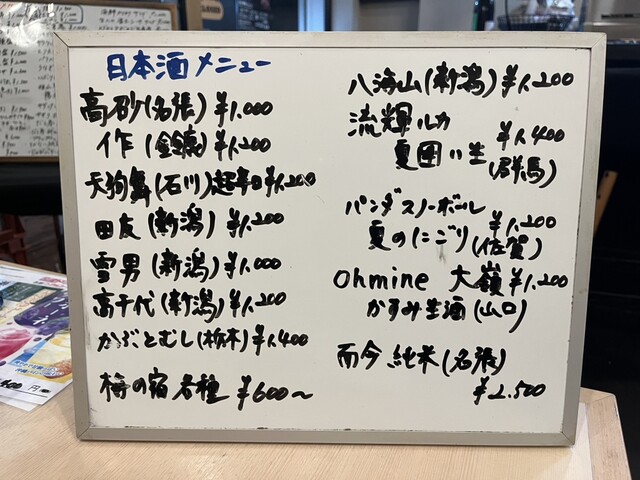 日本酒メニュー
高砂(名張)¥1.000
作(鈴鹿)¥1.200
天狗舞(石川)超辛口¥1.200
田友(新潟)¥1.200
雪男(新潟)¥1.000
高千代(新潟)¥1.200
かぶとむし(栃木)¥1.400
梅の宿 各種 ¥600〜
八海山(新潟)¥1.200
流輝ルカ
夏囲い生 ¥1.400
(群馬)
パンダスノーボール
夏のにごり(佐賀) ¥1.200
Ohmine 大嶺 ¥1.200
かすみ生酒(山口)
而今 純米(名張)
¥2.500